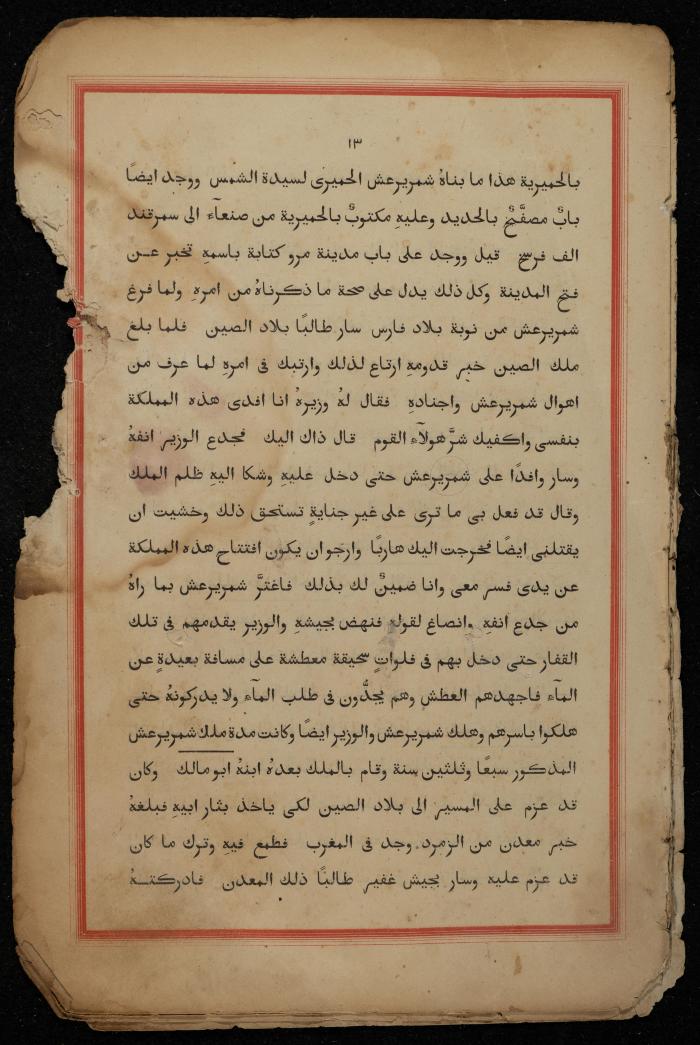 ١٣
بالحميرية هذا ما بناهُ شمريرعش الحميرى لسيدة الشمس ووجد ايضًا
بابٌ مصفَّحٌ بالحديد وعليهِ مكتوبٌ بالحميرية من صنعآء الى سمرقند
الف فرسخ قيل ووجد على باب مدينة مرو كتابة باسمهِ تخبر عن
فتح المدينة وكل ذلك يدل على صحة ما ذكرناهُ من امرهِ ولما فرغ
شمريرعش من نوبة بلاد فارس سار طالبًا بلاد الصين فلما بلغ
ملك الصين خبر قدومهِ ارتاع لذلك وارتبك فى امرهِ لما عرف من
اهوال شمريرعش واجنادهِ فقال لهُ وزيرهُ انا افدى هذه المملكة
بنفسى واكفيك شرَّ هولآء القوم قال ذاك اليك فجدع الوزير انفهُ
وسار وافدًا على شمريرعش حتى دخل عليهِ وشكا اليهِ ظلم الملك
وقال قد فعل بى ما ترى على غير جنايةٍ تستحق ذلك وخشيت ان
يقتلنى ايضًا فخرجت اليك هاربًا وارجو ان يكون افتتاح هذه المملكة
عن يدى فسر معى وانا ضمينٌ لك بذلك فاغترَّ شمريرعش بما راهُ
من جدع انفهِ وانصاغ لقولهِ فنهض بجيشهِ والوزير يقدمهم فى تلك
القفار حتى دخل بهم فى فلواتٍ سحيقة معطشة على مسافة بعيدةٍ عن
المآء فاجهدهم العطش وهم يجدُّون فى طلب المآء ولا يدركونهُ حتى
هلكوا باسرهم وهلك شمريرعش والوزير ايضًا وكانت مدة ملك شمريرعش
المذكور سبعًا وثلثين سنة وقام بالملك بعدهُ ابنهُ ابو مالك وكان
قد عزم على المسير الى بلاد الصين لكى ياخذ بثار ابيهِ فبلغهُ
خبر معدن من الزمرد وجد فى المغرب فطمع فيهِ وترك ما كان
قد عزم عليه وسار بجيش غفير طالبًا ذلك المعدن فادركتهُ